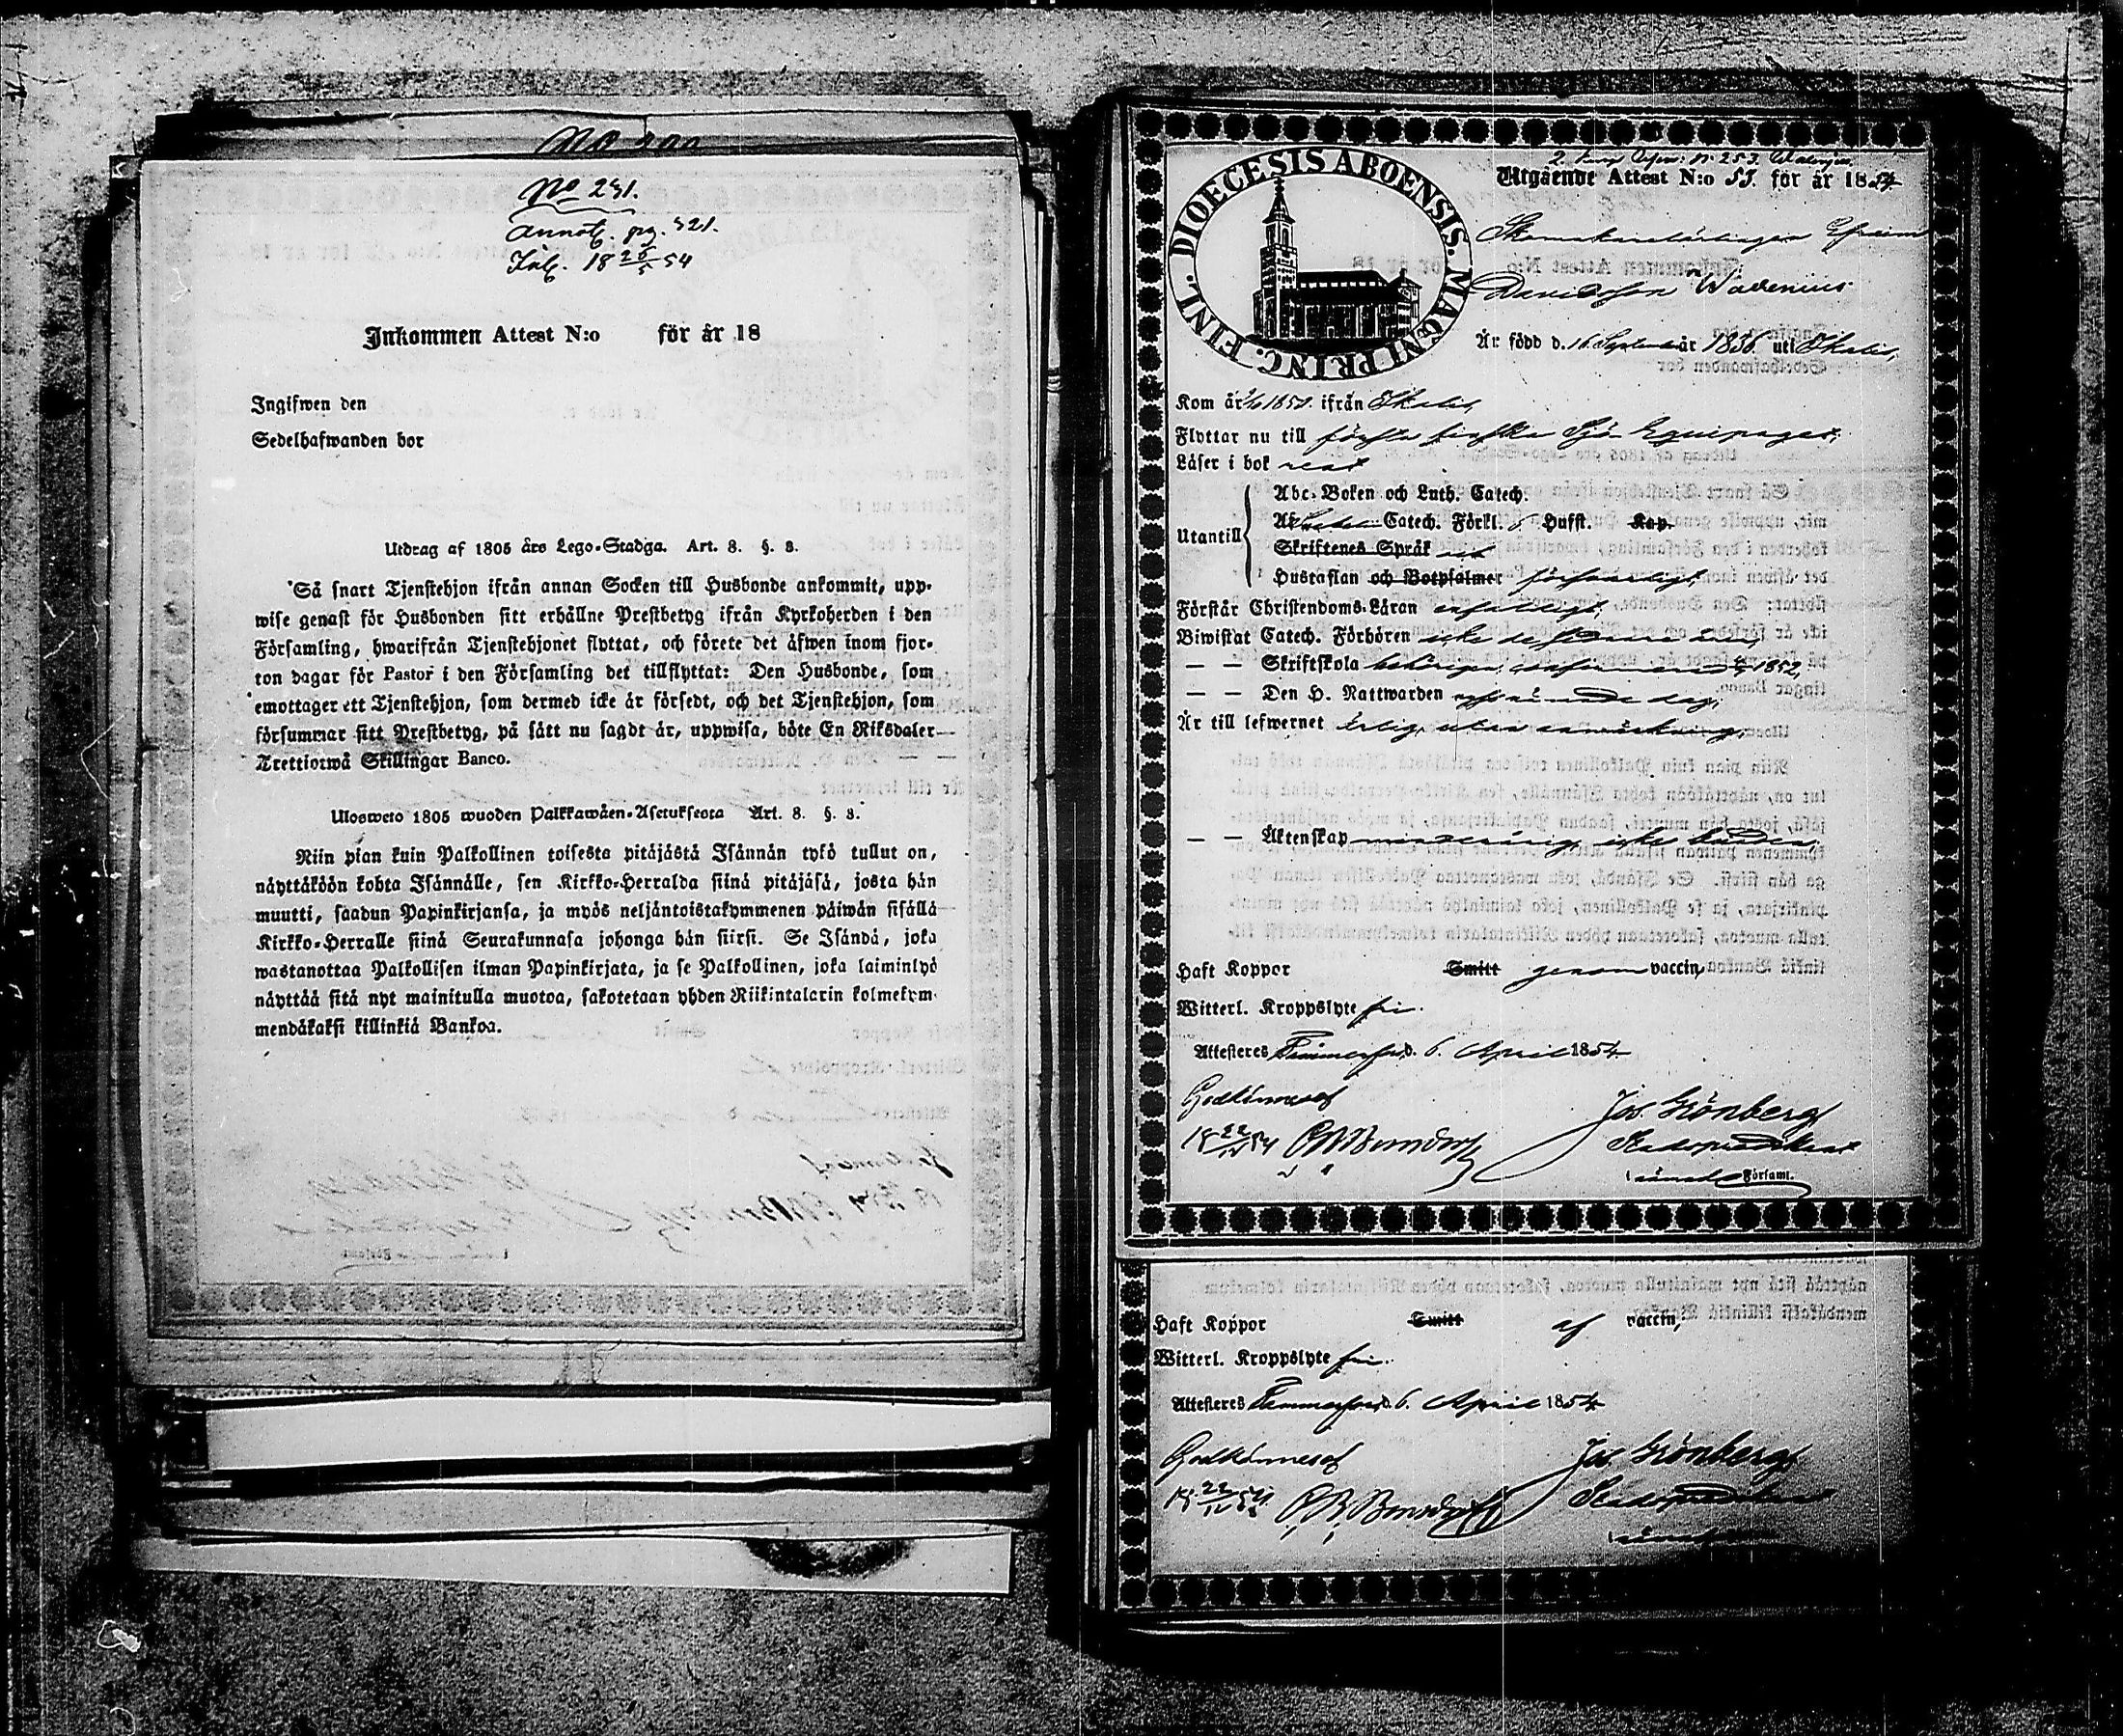 No 291.
annot. pg. 321.
Inl. 18 26/5 54
Inkommen Attest N:o för år 18
Ingifwen den
Sedelhafwanden bor
Utdrag af 1805 års Lego-Stadga. Art. 8. §. 8.
Så snart Tjenstehjon ifrån annan Socken till Husbonde ankommit, upp-
wise genast för Husbonden sitt erhållne Prestbetyg ifrån Kyrkoherden i den
Församling, hwarifrån Tjenstehjonet flyttat, och förete det äfwen inom fjor-
ton dagar för Pastor i den Församling det tillflyttat: Den Husbonde, som
emottager ett Tjenstehjon, som dermed icke är försedt, och det Tjenstehjon, som
försummar sitt Prestbetyg, på sätt nu sagdt är, uppwisa, böte En Riksdaler
Trettiotwå Skillingar Banco.
Ulosweto 1805 wuoden Palkkawäen-Asetuksesta Art. 8. §. 8.
Niin pian kuin Palkollinen toisesta pitäjästä Isännän tykö tullut on,
näyttäköön kohta Isännälle, sen Kirkko-Herralda siinä pitäjäsä, josta hän
muutti, saadun Papinkirjansa, ja myös neljäntoistakymmenen päiwän sisällä
Kirkko-Herralle siinä Seurakunnasa johonga hän siirsi. Se Isändä, joka
wastanottaa Palkollisen ilman Papinkirjata, ja se Palkollinen, joka laiminlyö
näyttää sitä nyt mainitulla muotoa, sakotetaan yhden Riikintalarin kolmekym-
mendäkaksi killinkiä Bankoa.
DIOECESIS ABOENSIS. MAGNI PRINC. FINL.
Utgående Attest N:o 55. för år 1854
Skomakarelärlingen Efraim
Davidsson Wadenius
Är född d. 16 September år 1836 uti Ikalis,
Kom år 1851. ifrån Ikalis,
Flyttar nu till första finska Sjö Equipaget,
Läser i bok rent
Utantill
Abc-Boken och Luth. Catech.
Catech. Förkl. 6 Hufst. Kap.
Skriftenes Språk
Hustaflan och Botpsalmer försvarligt,
Förstår Christendoms-Läran enfaldigt,
Biwistat Catech. Förhören icke
— — Skriftskola behörigen, 1852,
— — Den H. Nattwarden nämnde dag,
Är till lefwernet ärlig, utan anmärkning,
— — Äktenskap minderårig, icke bunden,
Haft Koppor Smitt genom vaccin,
Witterl. Kroppslyte fri.
Attesteras Tammerfors d. 6. April 1854
Godkännes af
18 22/IV 54
Jos Grönberg
Stadspredikant
i nämnde Församl.
Haft Koppor Smitt af vaccin,
Witterl. Kroppslyte fri.
Attesteras Tammerfors d. 6. April 1854
Godkännes af
18 22/IV 54
Jos Grönberg
Stadspredikant
i nämnde